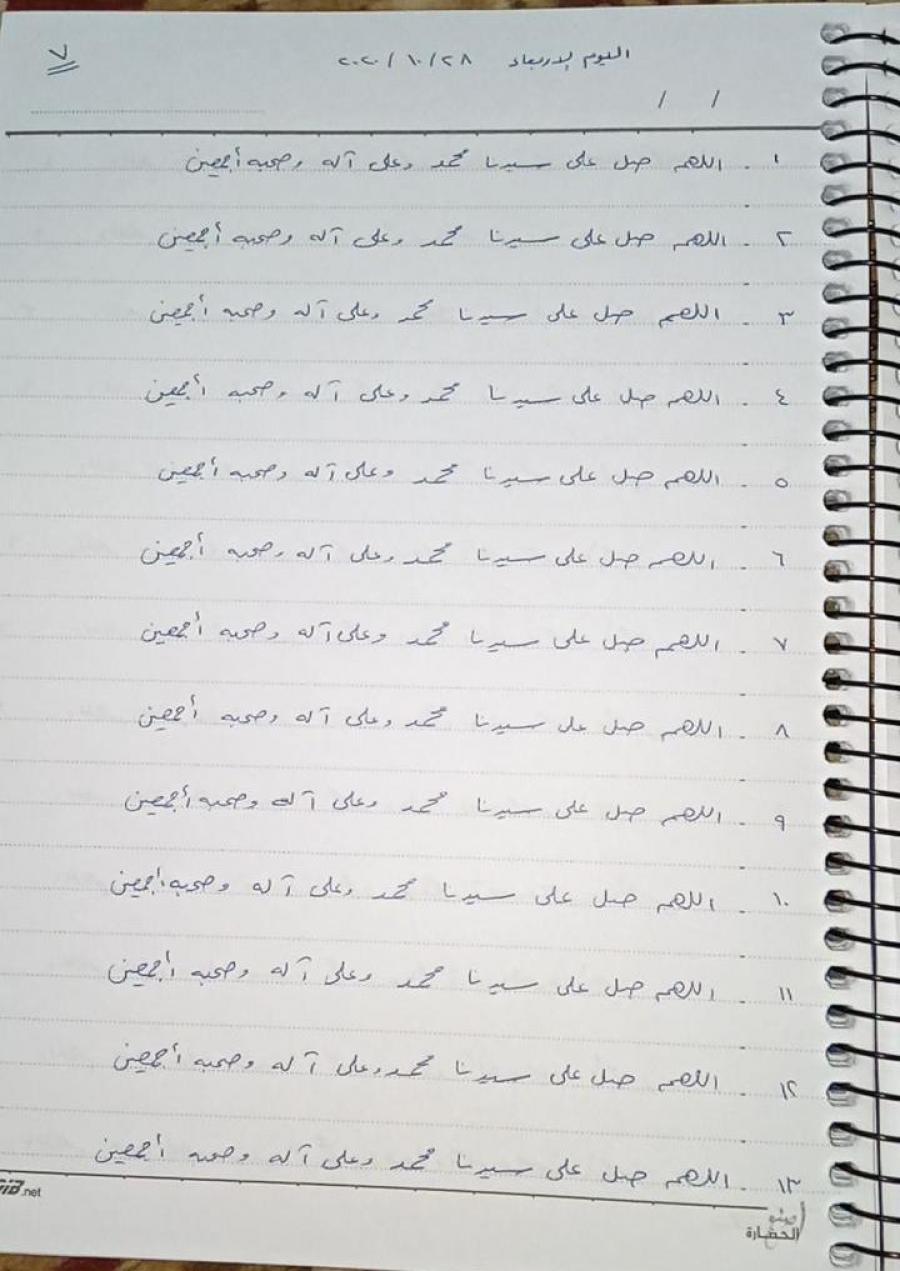 اليوم الاربعاء ٢٠٢٠/١٠/٢٨
٧
/ /
١ . اللهم صل على سيدنا محمد وعلى آله وصحبه أجمعين
٢ . اللهم صل على سيدنا محمد وعلى آله وصحبه أجمعين
٣ . اللهم صل على سيدنا محمد وعلى آله وصحبه أجمعين
٤ . اللهم صل على سيدنا محمد وعلى آله وصحبه أجمعين
٥ . اللهم صل على سيدنا محمد وعلى آله وصحبه أجمعين
٦ . اللهم صل على سيدنا محمد وعلى آله وصحبه أجمعين
٧ . اللهم صل على سيدنا محمد وعلى آله وصحبه أجمعين
٨ . اللهم صل على سيدنا محمد وعلى آله وصحبه أجمعين
٩ . اللهم صل على سيدنا محمد وعلى آله وصحبه أجمعين
١٠ . اللهم صل على سيدنا محمد وعلى آله وصحبه أجمعين
١١ . اللهم صل على سيدنا محمد وعلى آله وصحبه أجمعين
١٢ . اللهم صل على سيدنا محمد وعلى آله وصحبه أجمعين
١٣ . اللهم صل على سيدنا محمد وعلى آله وصحبه أجمعين
الحضارة
.net